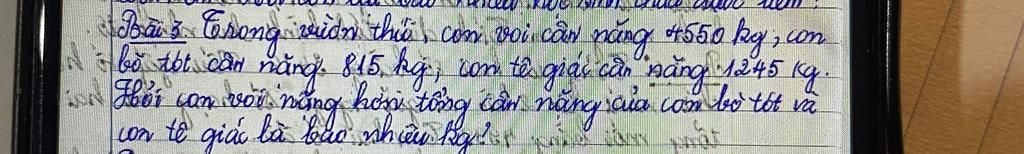 Bài 3 Trong vườn thú, con voi cân nặng 4550 kg, con
bò tót cân nặng 815 kg, con tê giác cân nặng 1245 kg.
Hỏi con voi nặng hơn tổng cân nặng của con bò tót và
con tê giác là bao nhiêu kg?